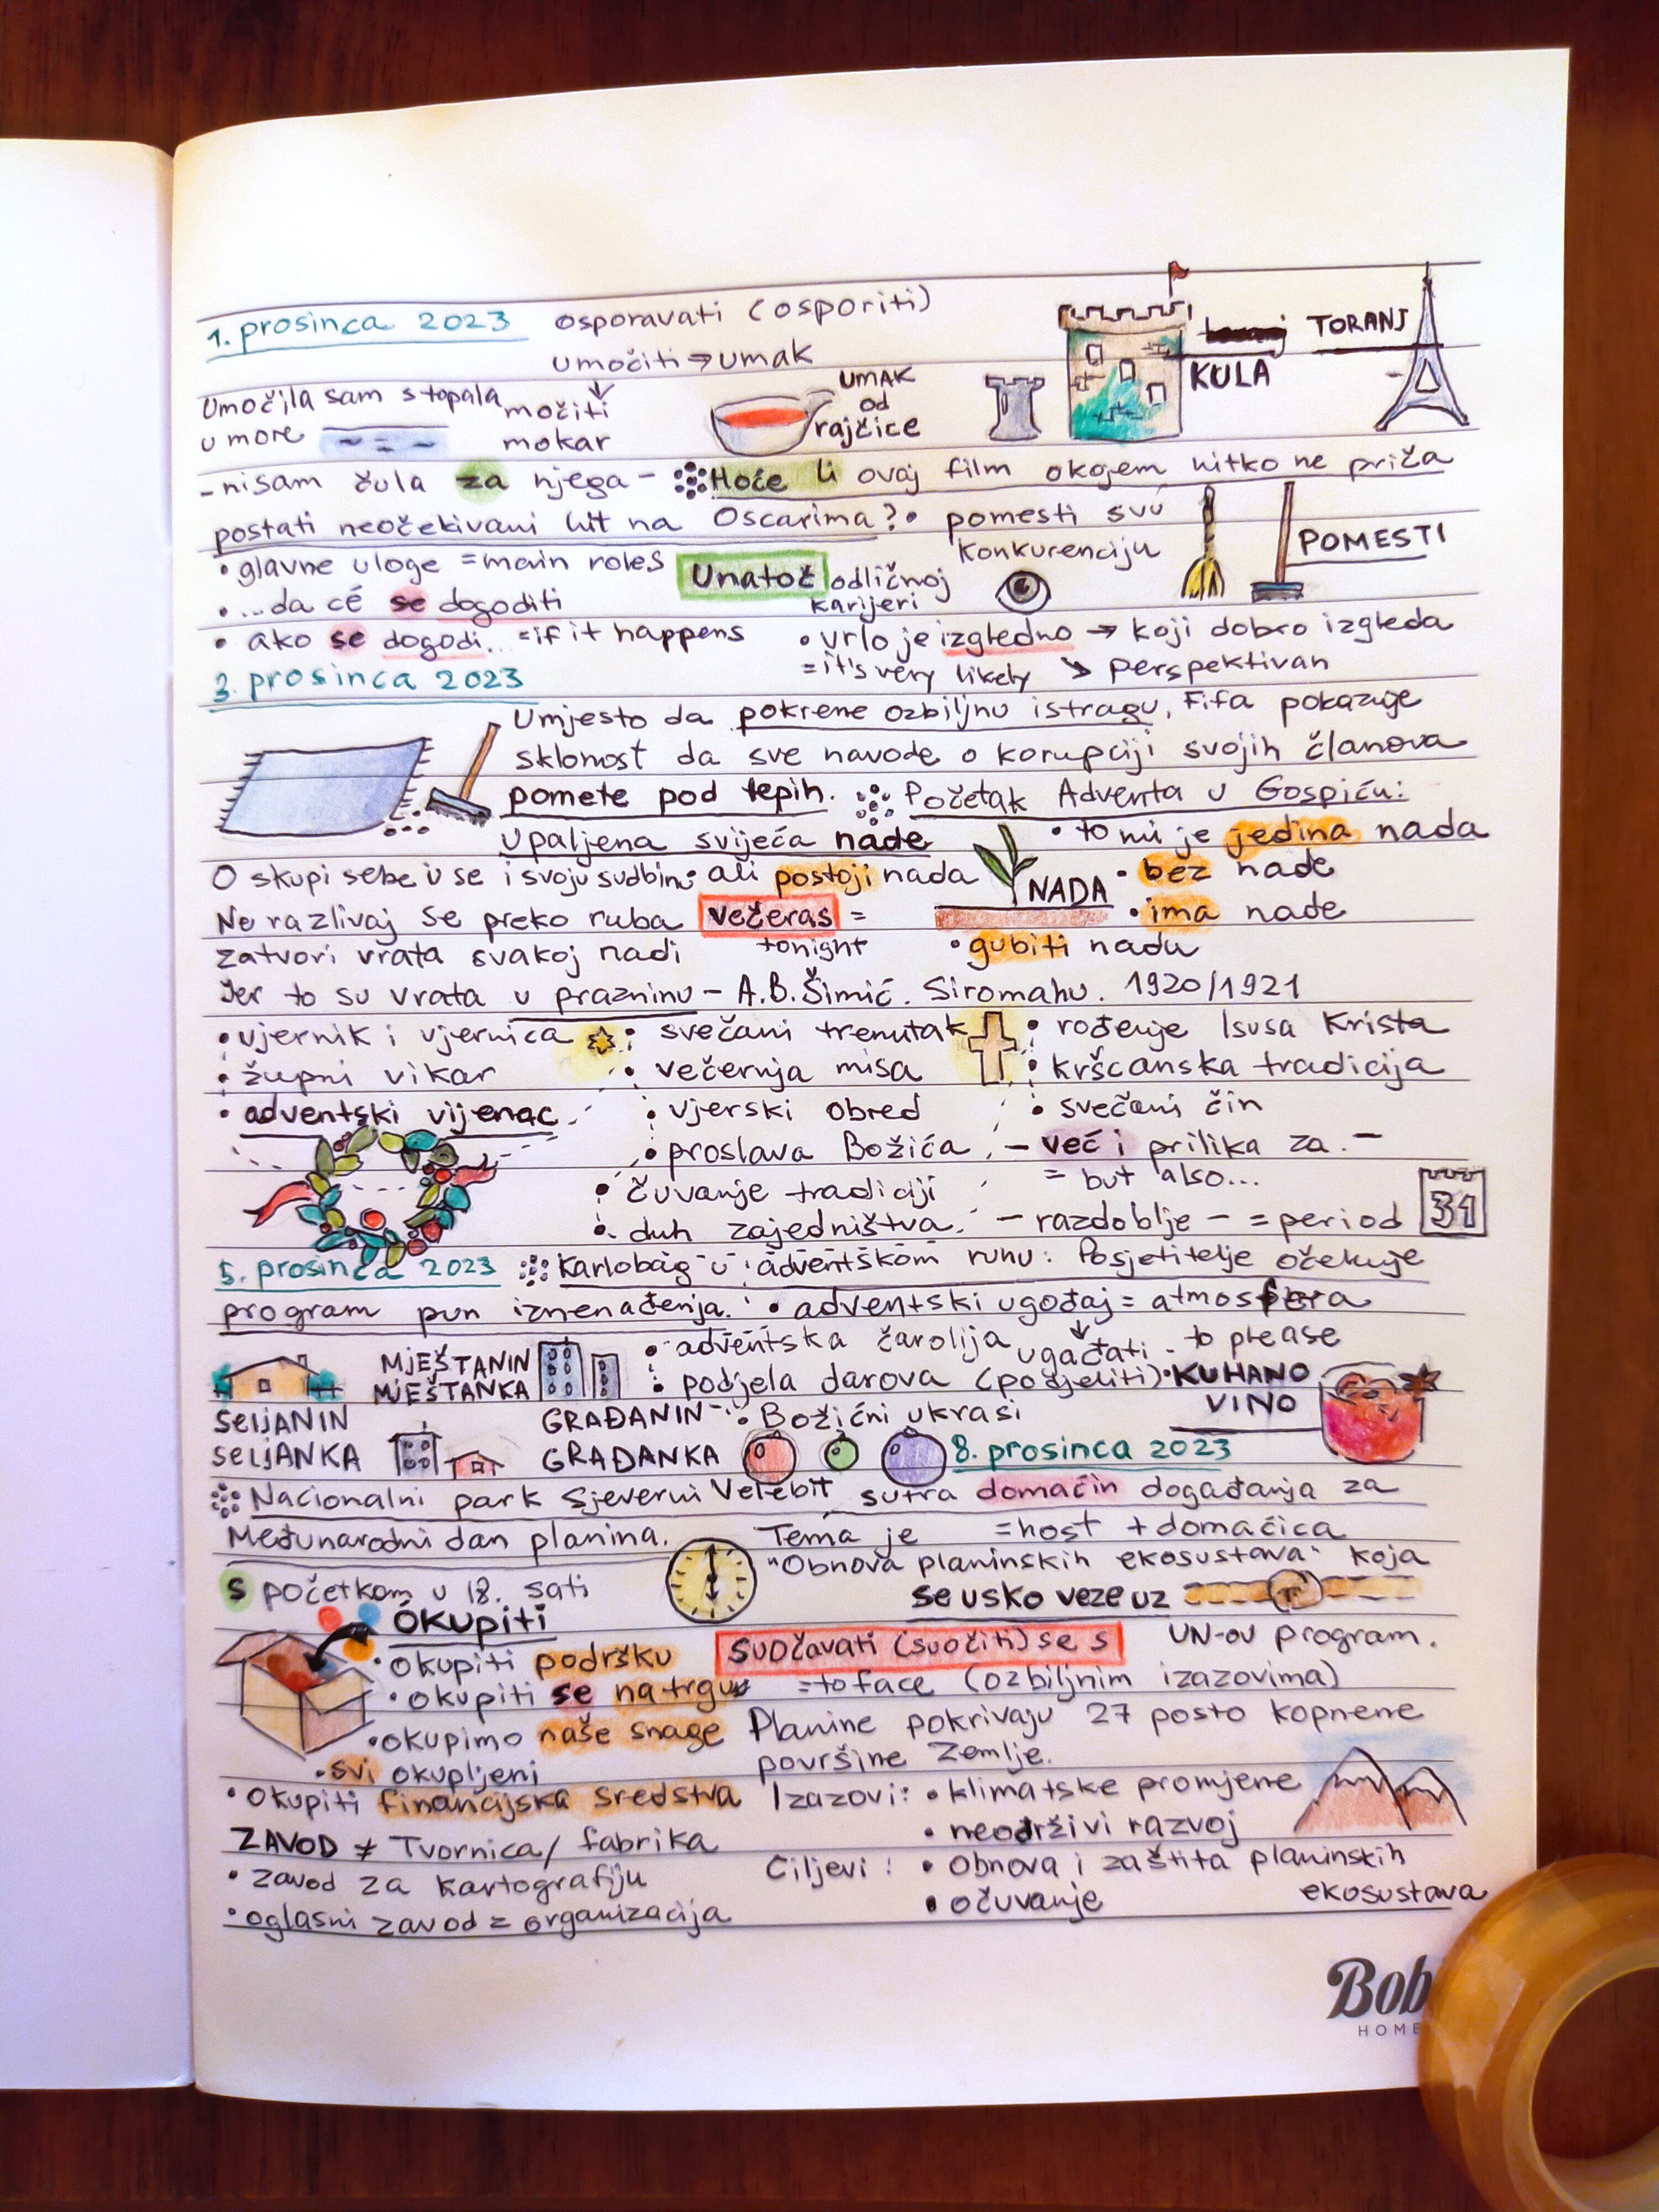 1. prosinca 2023 osporavati (osporiti)
umočiti → umak
TORANJ
KULA
Umočila sam stopala
u more
močiti
mokar
UMAK
od
rajčice
- nisam čula za njega - Hoće li ovaj film o kojem nitko ne priča
postati neočekivani hit na Oscarima? • pomesti svu
konkurenciju
POMESTI
• glavne uloge = main roles Unatoč odličnoj
karijeri
• ... da će se dogoditi
• ako se dogodi... = if it happens • vrlo je izgledno → koji dobro izgleda
= it's very likely ↘ perspektivan
3. prosinca 2023
Umjesto da pokrene ozbiljnu istragu, Fifa pokazuje
sklonost da sve navode o korupciji svojih članova
pomete pod tepih. Početak Adventa u Gospiću:
Upaljena svijeća nade • to mi je jedina nada
O skupi sebe u se i svoju sudbinu • ali postoji nada NADA • bez nade
Ne razlivaj se preko ruba večeras = • ima nade
zatvori vrata svakoj nadi tonight • gubiti nadu
Jer to su vrata u prazninu - A.B.Šimić. Siromahu. 1920/1921
• vjernik i vjernica • svečani trenutak • rođenje Isusa Krista
• župni vikar • večernja misa • kršcanska tradicija
• adventski vijenac • vjerski obred • svečani čin
• proslava Božića - već i prilika za. -
= but also...
• čuvanje tradiciji
• duh zajedništva - razdoblje - = period 31
5. prosinca 2023 Karlobag u adventskom ruhu: Posjetitelje očekuje
program pun iznenađenja. • adventski ugođaj = atmosfera
• adventska čarolija ugađati - to please
MJEŠTANIN
MJEŠTANKA
• podjela darova (podijeliti) • KUHANO
VINO
SELJANIN
SELJANKA
GRAĐANIN
GRAĐANKA
• Božićni ukrasi
8. prosinca 2023
Nacionalni park Sjeverni Velebit sutra domaćin događanja za
Međunarodni dan planina. Tema je = host + domaćica
"Obnova planinskih ekosustava" koja
s početkom u 18. sati se usko veze uz
UN-ov program.
OKUPITI
• okupiti podršku SUOČAVATI (suočiti) se s
• okupiti se na trgu = to face (ozbiljnim izazovima)
• okupimo naše snage Planine pokrivaju 27 posto kopnene
površine Zemlje.
• svi okupljeni
• okupiti financijska sredstva Izazovi: • klimatske promjene
• neodrživi razvoj
ZAVOD ≠ Tvornica/fabrika
• zavod za kartografiju Ciljevi: • Obnova i zaštita planinskih
ekosustava
• oglasni zavod = organizacija • očuvanje
Bob
HOME